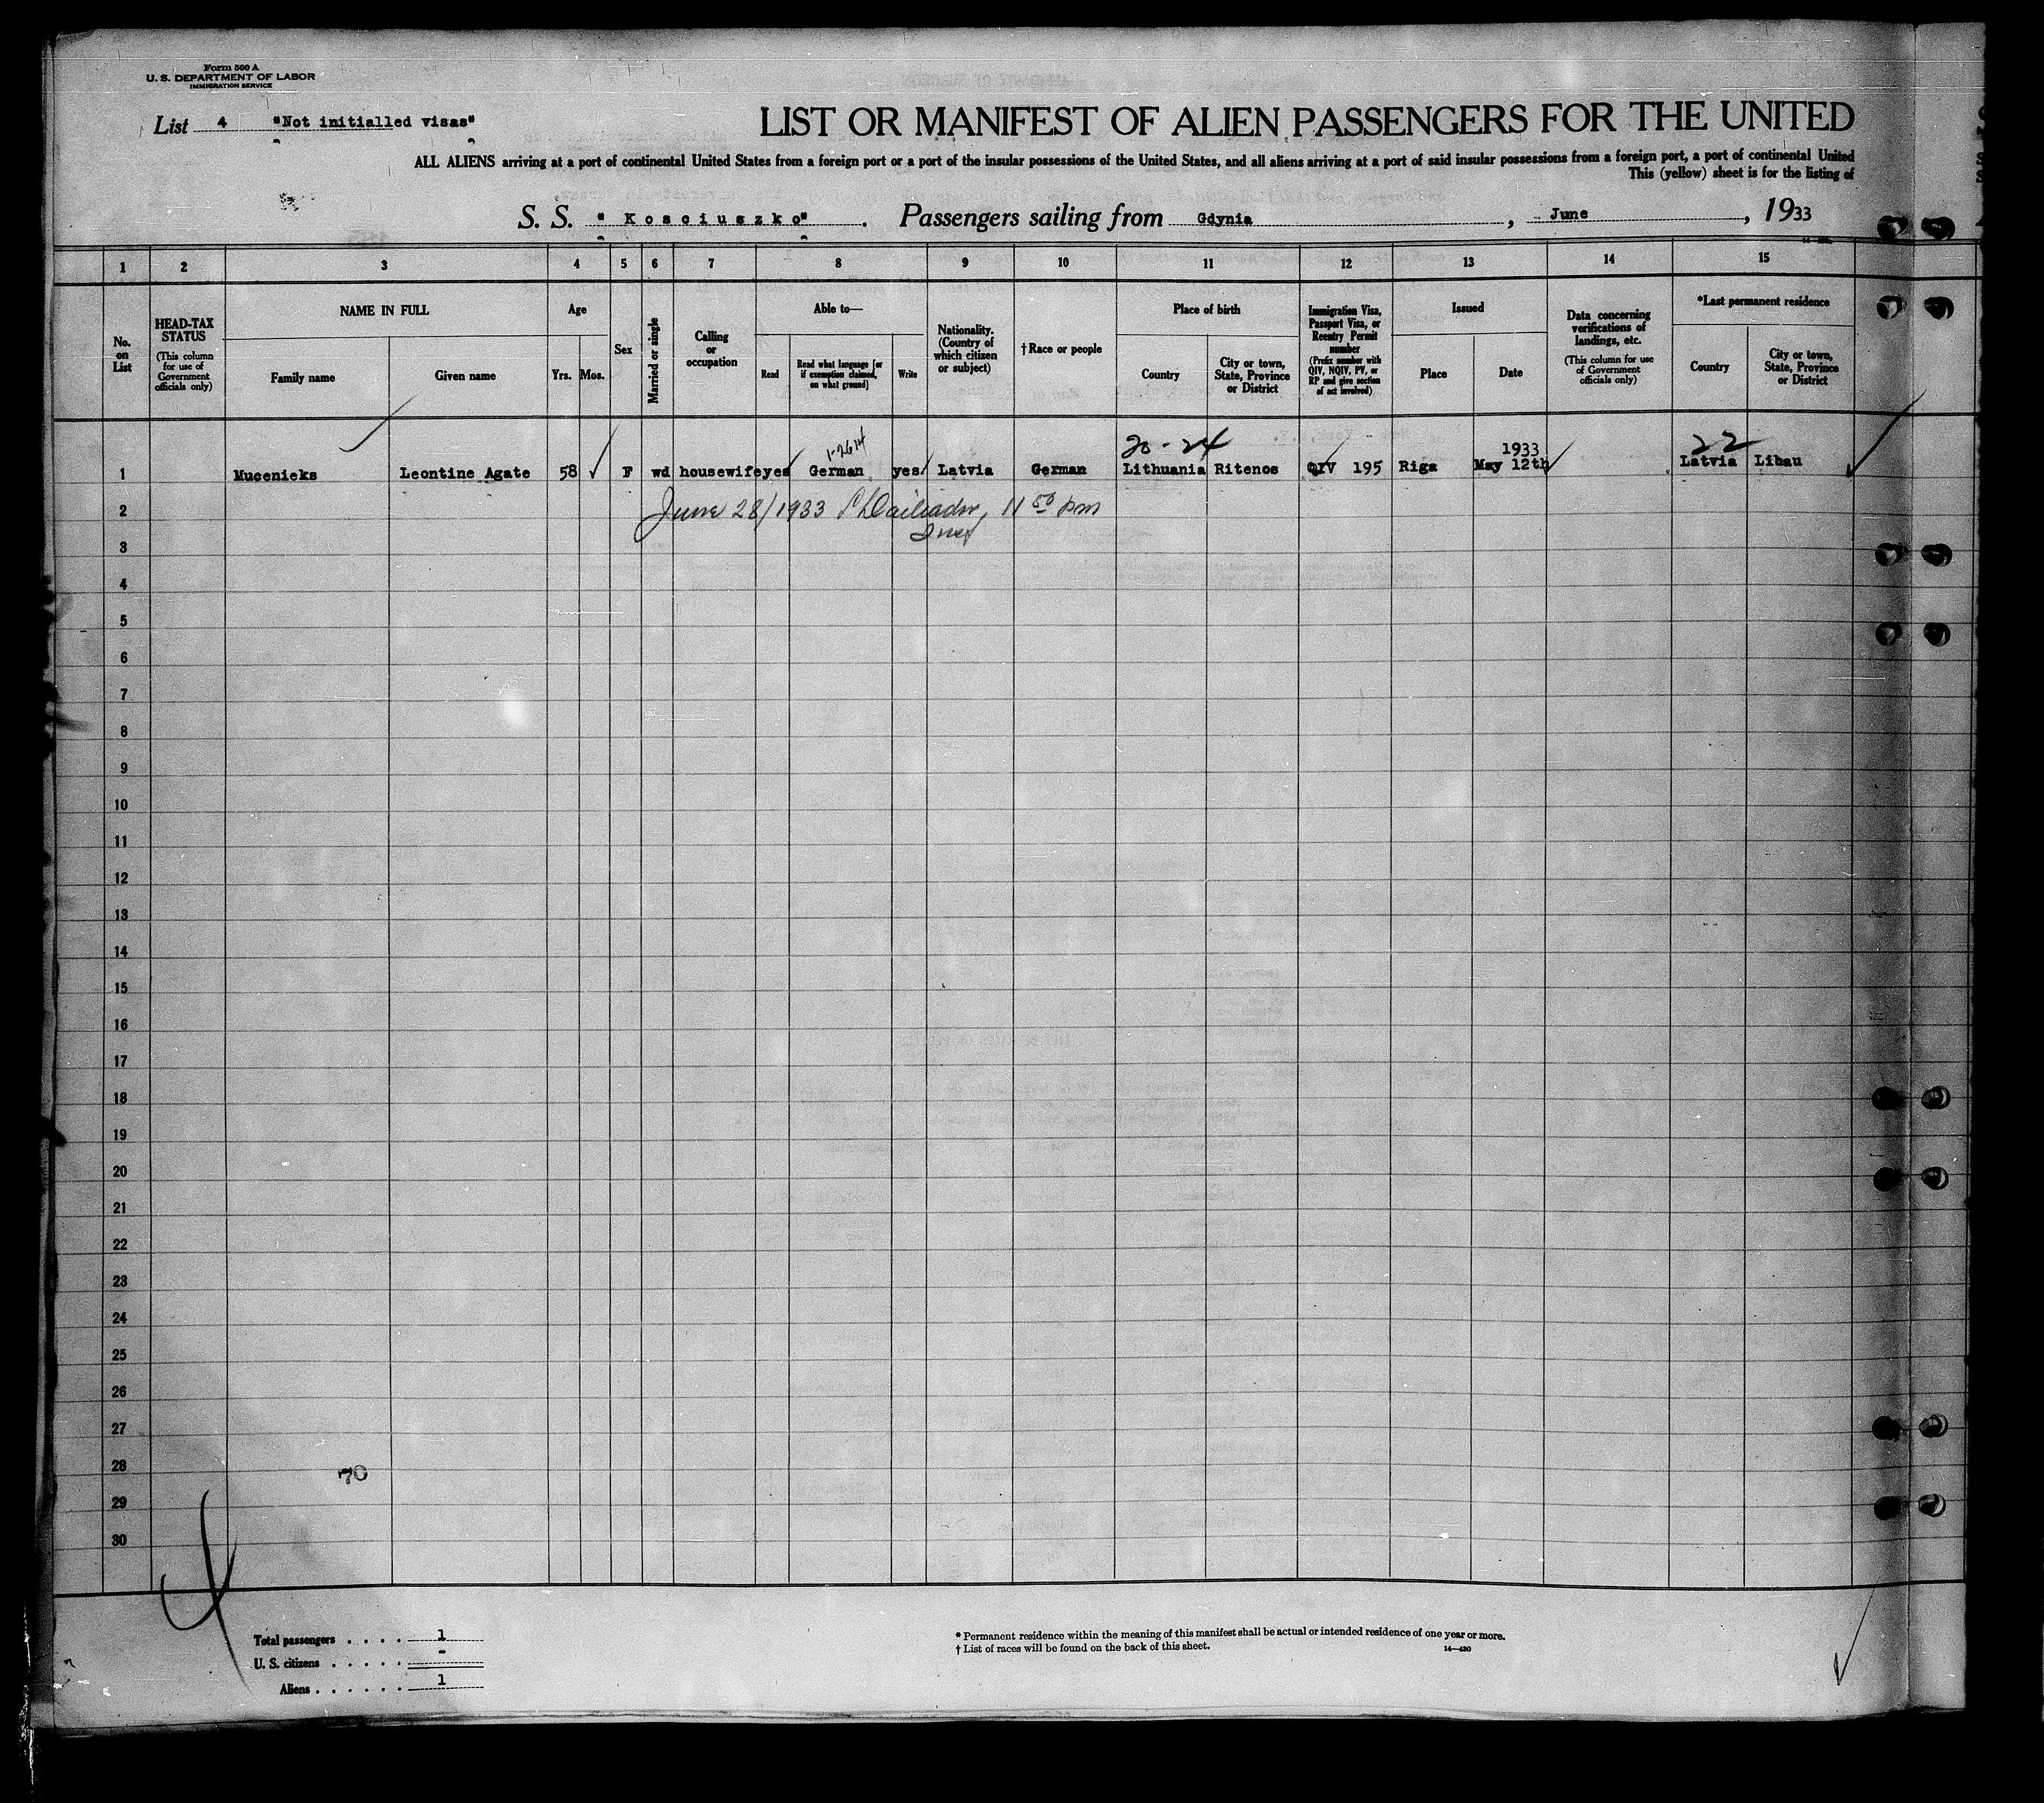 Form 500 A
U. S. DEPARTMENT OF LABOR
IMMIGRATION SERVICE
List 4 "Not initialled visas"
LIST OR MANIFEST OF ALIEN PASSENGERS FOR THE UNITED
ALL ALIENS arriving at a port of continental United States from a foreign port or a port of the insular possessions of the United States, and all aliens arriving at a port of said insular possessions from a foreign port, a port of continental United
This (yellow) sheet is for the listing of
S. S. "Kosciuszko". Passengers sailing from Gdynia, June, 1933
1 2 3 4 5 6 7 8 9 10 11 12 13 14 15
No. on List
HEAD-TAX STATUS
(This column for use of Government officials only)
NAME IN FULL
Family name
Given name
Age
Yrs. Mos.
Sex
Married or single
Calling or occupation
Able to—
Read
Read what language [or if exemption claimed, on what ground]
Write
Nationality. (Country of which citizen or subject)
†Race or people
Place of birth
Country
City or town, State, Province or District
Immigration Visa, Passport Visa, or Reentry Permit number
(Prefix number with QIV, NQIV, PV, or RP and give section of act involved)
Issued
Place
Date
Data concerning verifications of landings, etc.
(This column for use of Government officials only)
*Last permanent residence
Country
City or town, State, Province or District
1-2614 20-24 1933 22
1 Mucenieks Leontine Agate 58 √ F wd housewife yes German yes Latvia German Lithuania Ritenos QIV 195 Riga May 12th Latvia Libau
2 June 28/1933 11 50 pm
Insp
3
4
5
6
7
8
9
10
11
12
13
14
15
16
17
18
19
20
21
22
23
24
25
26
27
28 70
29
30
Total passengers . . . . 1
U. S. citizens . . . . . -
Aliens . . . . . . 1
* Permanent residence within the meaning of this manifest shall be actual or intended residence of one year or more.
† List of races will be found on the back of this sheet. 14—430